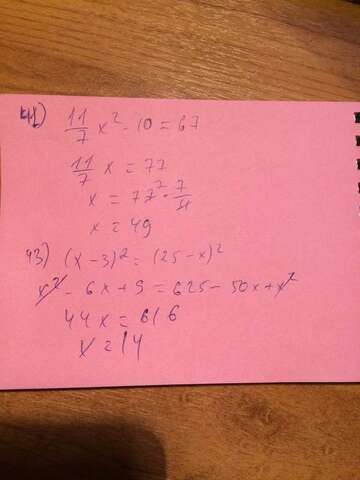 42) 11/7 x² - 10 = 67
11/7 x = 77
x = 77⁷ · 7/11
x = 49
43) (x - 3)² = (25 - x)²
x² - 6x + 9 = 625 - 50x + x²
44x = 616
x = 14